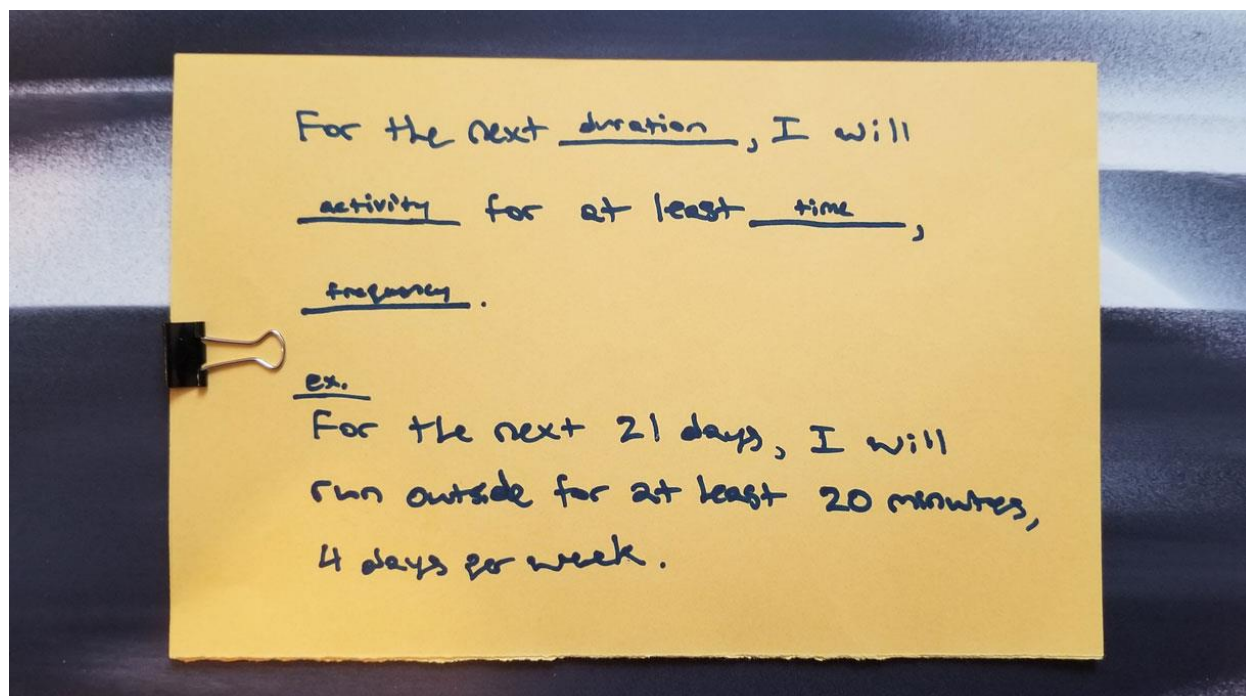 For the next duration, I will
activity for at least time,
frequency.
ex.
For the next 21 days, I will
run outside for at least 20 minutes,
4 days per week.